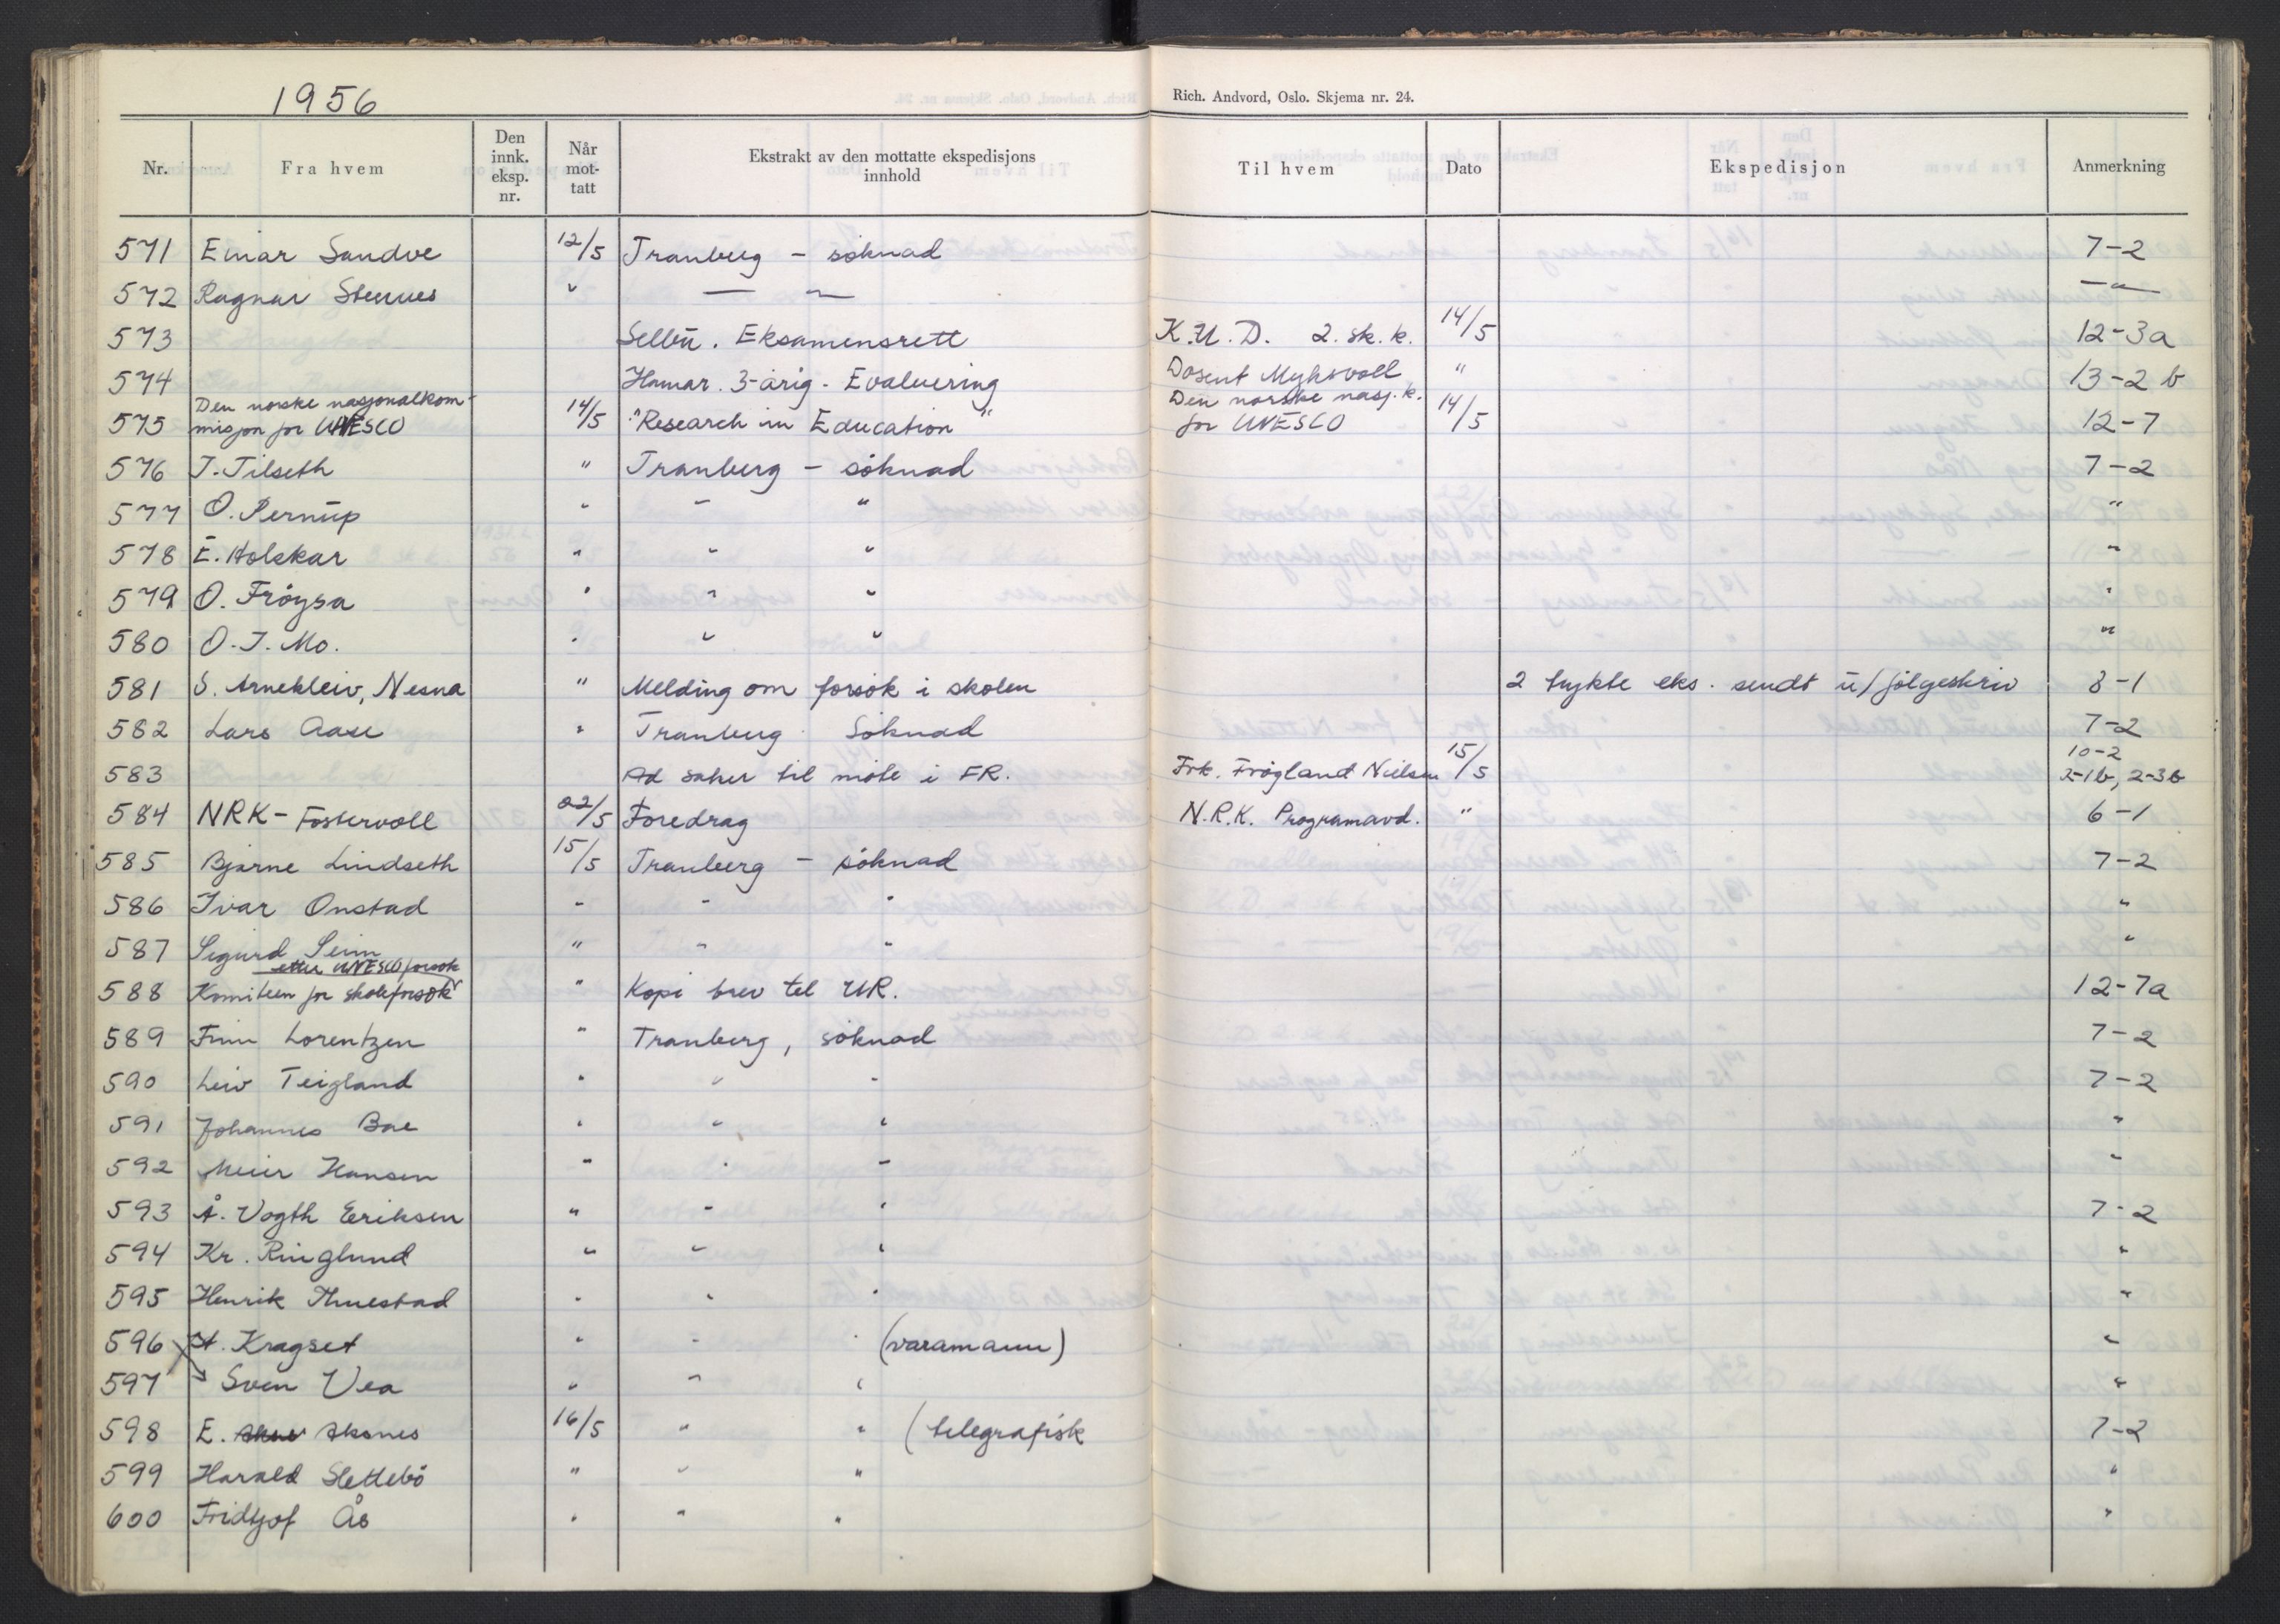 1956
Rich. Andvord, Oslo. Skjema nr. 24.
Nr. Fra hvem Den innk. eksp. nr. Når mot- tatt Ekstrakt av den mottatte ekspedisjons innhold Til hvem Dato Ekspedisjon Anmerkning
571 Einar Sandve 12/5 Tranberg - söknad 7-2
572 Ragnar " — " — — " —
573 Selbu. Eksamensrett K.U.D. 2. sk. k. 14/5 12-3a
574 Hamar. 3-årig - Evaluering Dosent Myhrvoll " 13-2 b
575 Den norske nasjonalkom- misjon for UNESCO 14/5 "Research in Education" Den norske nasj. k. for UNESCO 14/5 12-7
576 J. Tilseth " Tranberg - söknad 7-2
577 O. Pernup " " " "
578 E. Holskar " " " "
579 O. Fröysa " " " "
580 O. J. Mo. " " " "
581 S. Arnekleiv, Nesna " Melding om forsök i skolen 2 trykte eks. sendt u/ fölgeskriv 8-1
582 Lars Aase " Tranberg Söknad 7-2
583 Ad saker til möte i FR. Frk. Frögland Nielsen 15/5 10-2 2-1b, 2-3b
584 NRK - Fostervoll 02/5 Foredrag N.R.K. Programavd. " 6-1
585 Bjarne Lindseth 15/5 Tranberg - söknad 7-2
586 Ivar Onstad " " " "
587 Sigurd Seim " " " "
etter UNESCO forsök
588 Komiteen for skoleforsök " Kopi brev til UR. 12-7a
589 Finn Lorentzen " Tranberg, söknad 7-2
590 Leiv Teigland " " " 7-2
591 Johannes Boe " " " "
592 Meier Hansen " " " "
593 Å. Vogth Eriksen " " " 7-2
594 Kr. Ringlund " " " "
595 Henrik " " " "
596 H. Kragset " " " (varamann) "
597 Sven Vea " " " "
598 E. Aksnes 16/5 " " (telegrafisk 7-2
599 Harald Slettebö " " " "
600 Fridtjof Ås " " " "